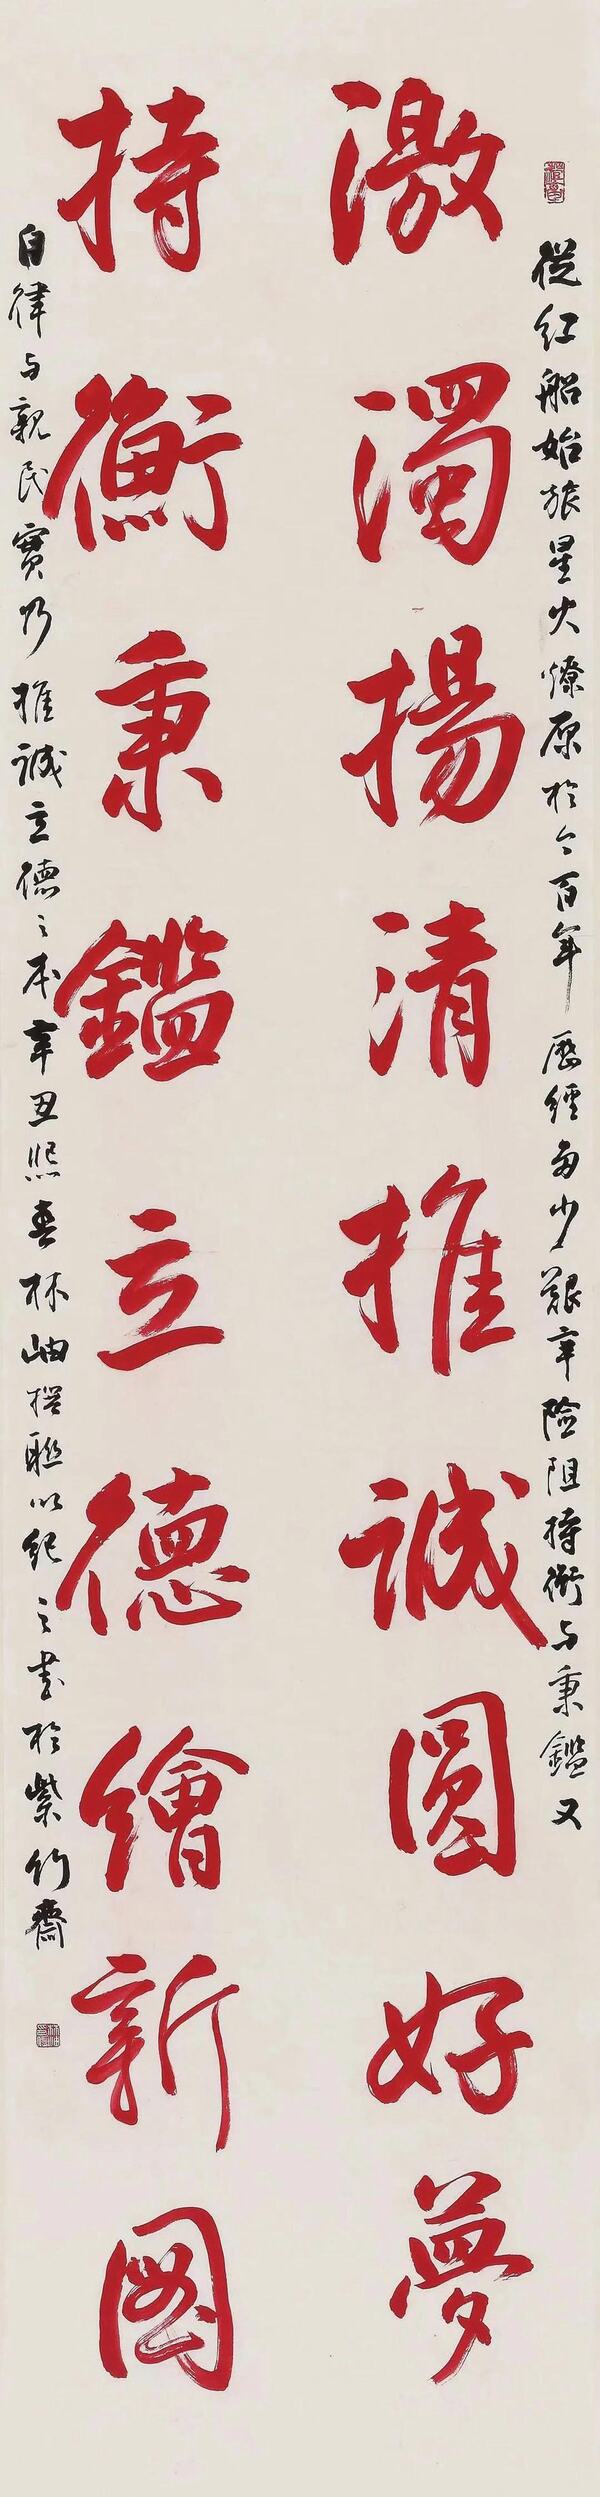 從紅船始旅星火燎原於今百年歷經多少艱辛險阻持衡与秉鑑又
激濁揚清推誠圓好夢
持衡秉鑑立德繪新圖
自律与親民實乃推誠立德之本辛丑熙春林岫撰聯以紀之書於紫竹齋